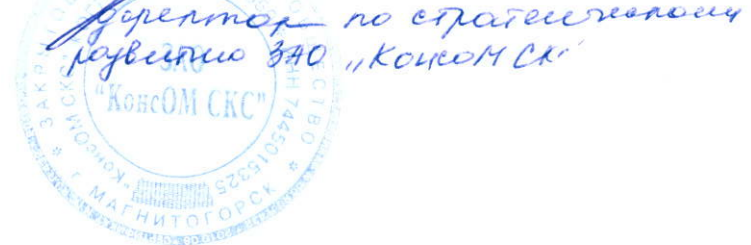 Директор по стратегическому
развитию ЗАО „КонсОМ СКС"
ЗАО
"КонсОМ СКС"
ЗАКРЫТОЕ
ЕСТВО
ИНН 7445015325
"КонсОМ СКС"
г. МАГНИТОГОРСК